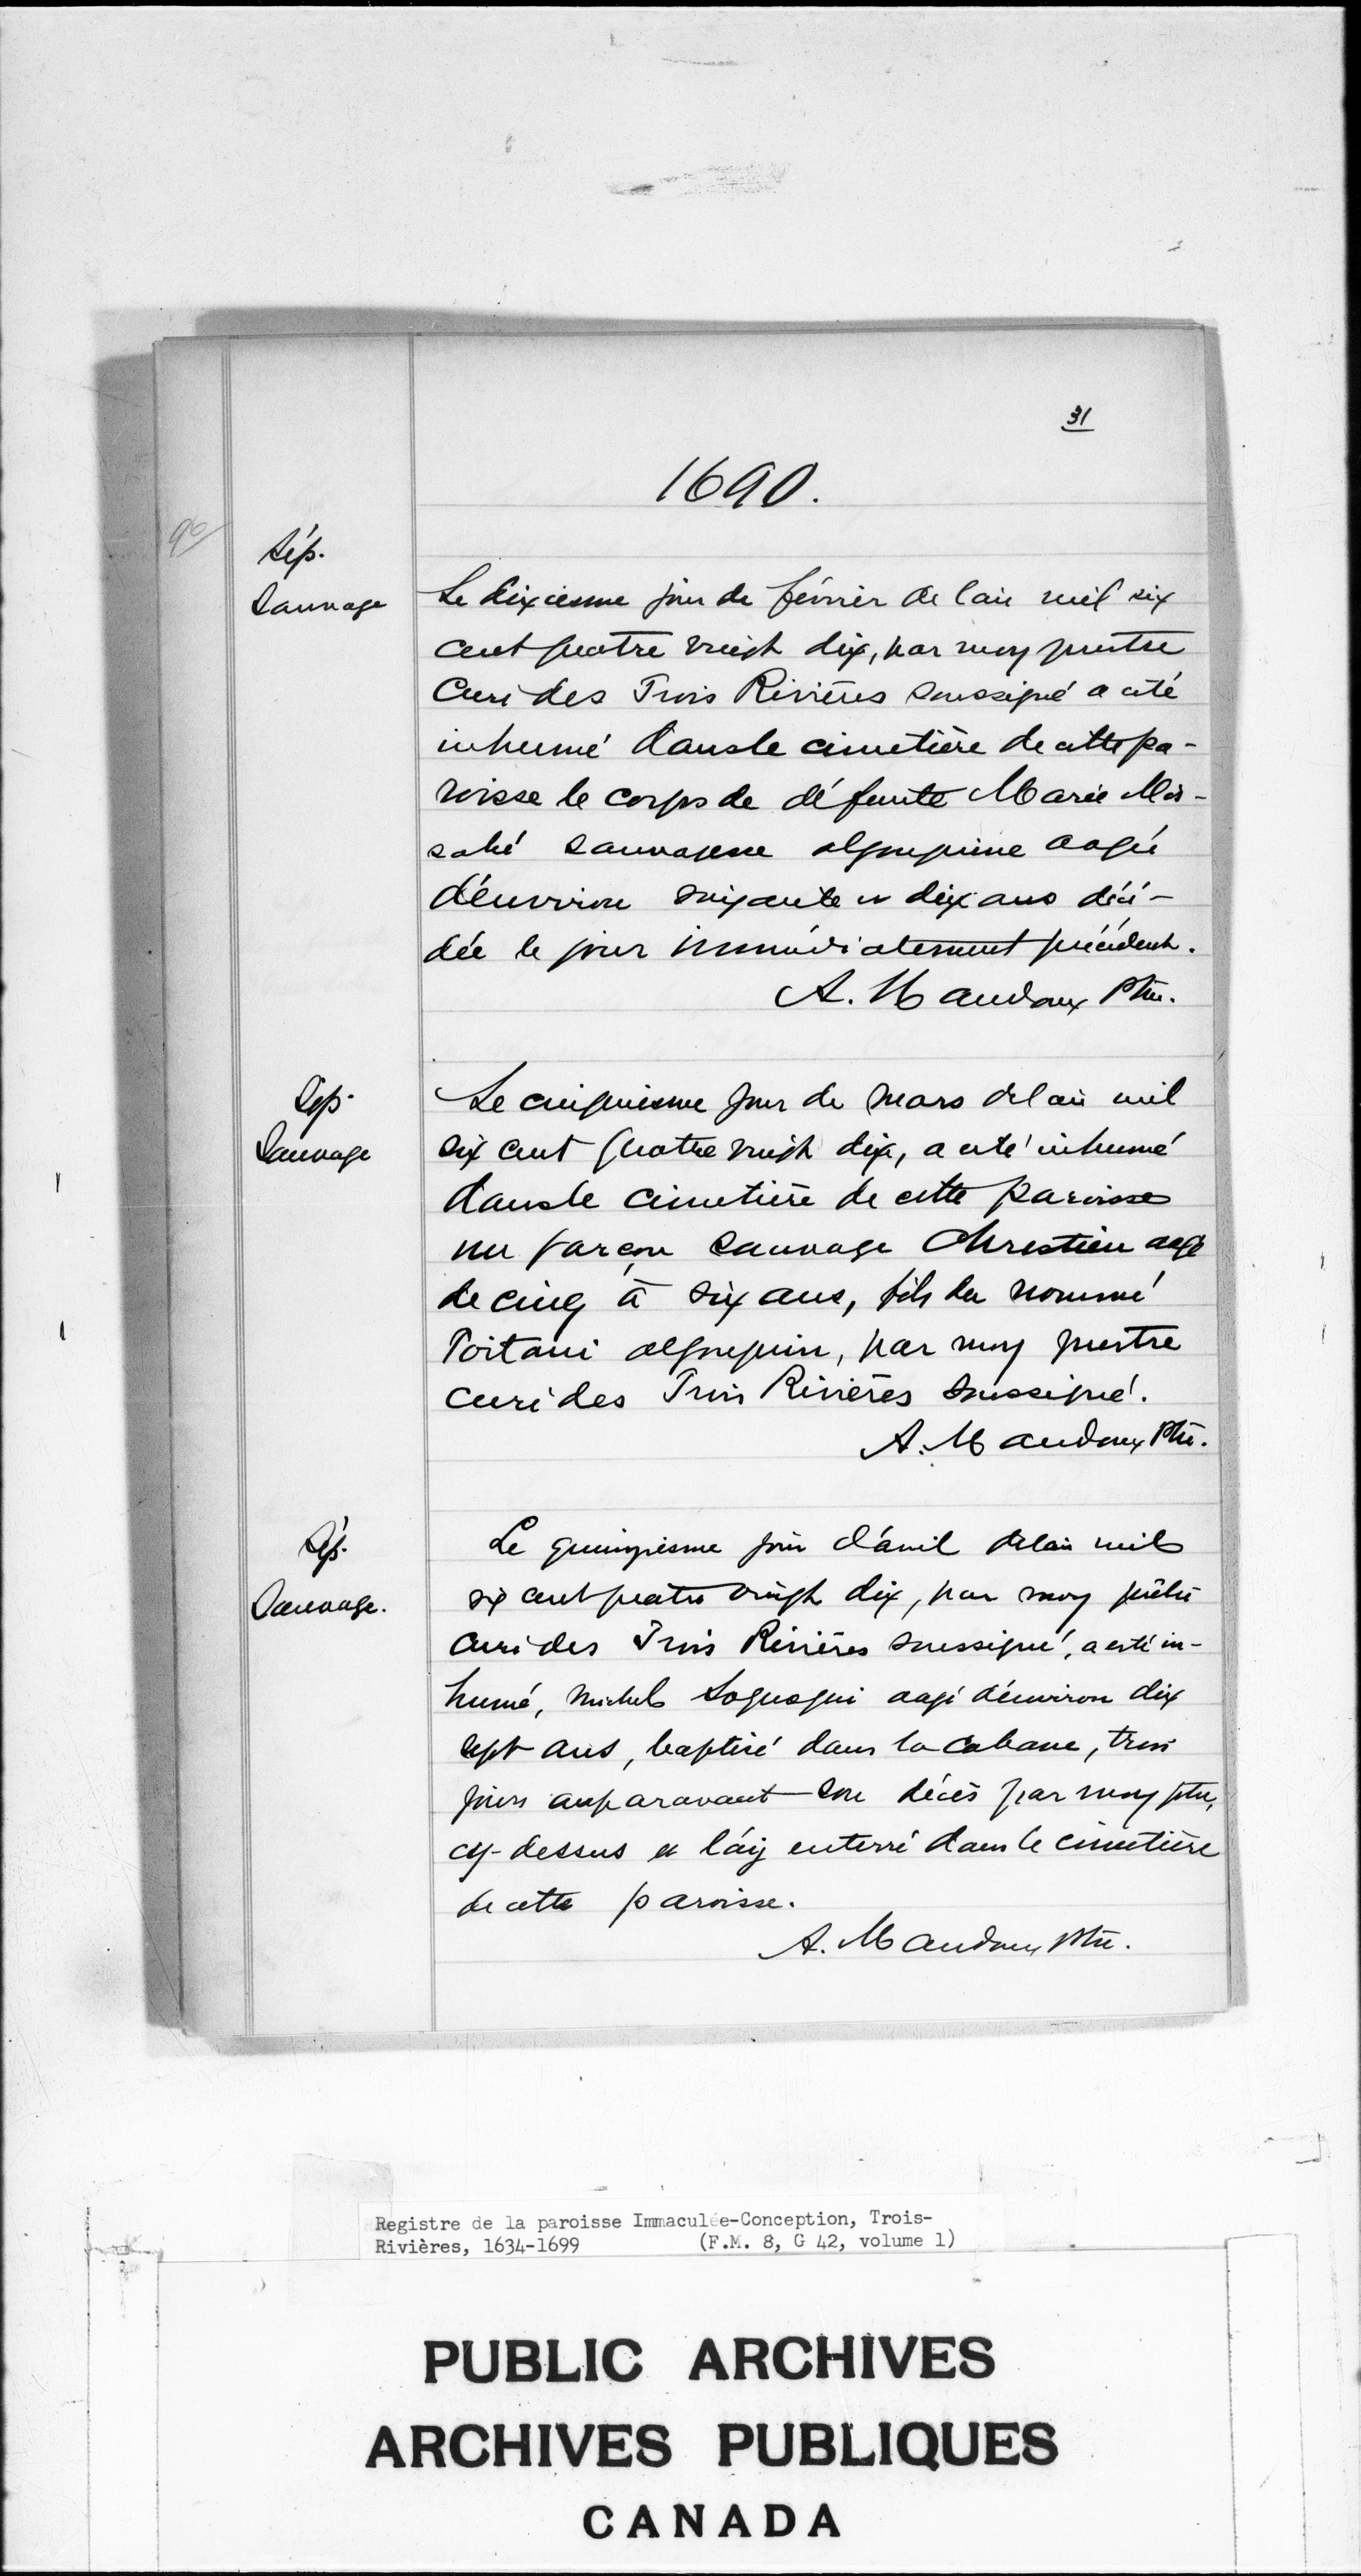 31
1690.
90
Sép.
Sauvage
Le dixiesme jour de février de l'an mil six
cent quatre vingt dix, par moy prestre
Curé des Trois Rivières soussigné a été
inhumé dans le cimetière de cette pa-
roisse le corps de défunte Marie
sauvagesse algonquine aagée
d'environ soixante et dix ans décé-
dée le jour immédiatement précédent.
A. Maudoux Ptre.
Sép.
Sauvage
Le cinquiesme jour de mars de l'an mil
six cent quatre vingt dix, a esté inhumé
dans le cimetière de cette paroisse
un garçon sauvage Chrestien aagé
de cinq à six ans, fils du nommé
algonquin, par moy prestre
curé des Trois Rivières soussigné.
A. Maudoux Ptre.
Sép.
Sauvage.
Le quinziesme jour d'avril de l'an mil
six cent quatre vingt dix, par moy prêtre
Curé des Trois Rivières soussigné, a esté in-
humé, Michel aagé d'environ dix
sept ans, baptisé dans la cabane, trois
jours auparavant son décès par moy ptre,
cy-dessus et l'ay enterré dans le cimetière
de cette paroisse.
A. Maudoux Ptre.
Registre de la paroisse Immaculée-Conception, Trois-
Rivières, 1634-1699 (F.M. 8, G 42, volume 1)
PUBLIC ARCHIVES
ARCHIVES PUBLIQUES
CANADA